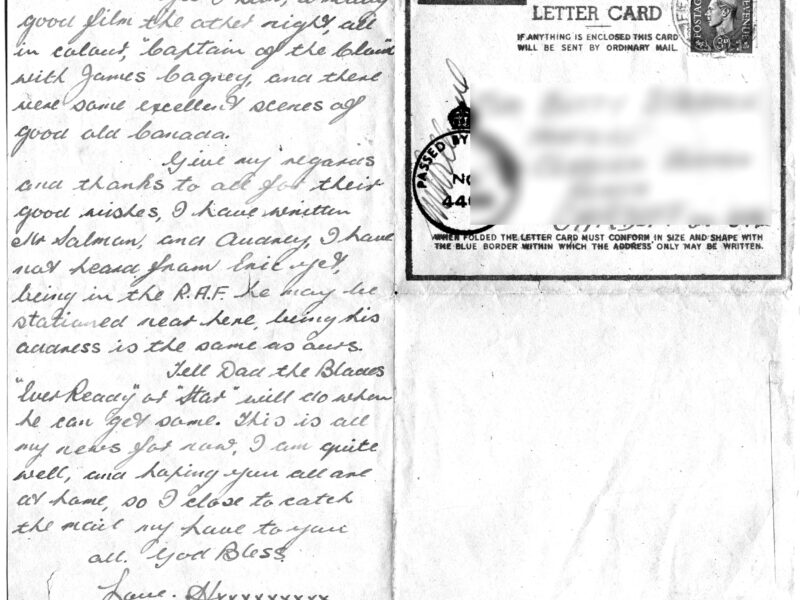 good film the other night, all
in colour, "Captain of the Clouds"
with James Cagney, and there
were some excellent scenes of
good old Canada.
Give my regards
and thanks to all for their
good wishes, I have written
Mr Salman, and Audrey, I have
not heard from Eric yet,
being in the R.A.F. he may be
stationed near here, being his
address is the same as ours.
Tell Dad the Blades
"Ever Ready" or "Star" will do when
he can get some. This is all
my news for now, I am quite
well, and hoping you all are
at home, so I close to catch
the mail my love to you
all. God Bless.
Love. Hxxxxxxxxxx
LETTER CARD
IF ANYTHING IS ENCLOSED THIS CARD
WILL BE SENT BY ORDINARY MAIL.
POSTAGE
REVENUE
PASSED BY
No
44
WHEN FOLDED THE LETTER CARD MUST CONFORM IN SIZE AND SHAPE WITH
THE BLUE BORDER WITHIN WHICH THE ADDRESS ONLY MAY BE WRITTEN.